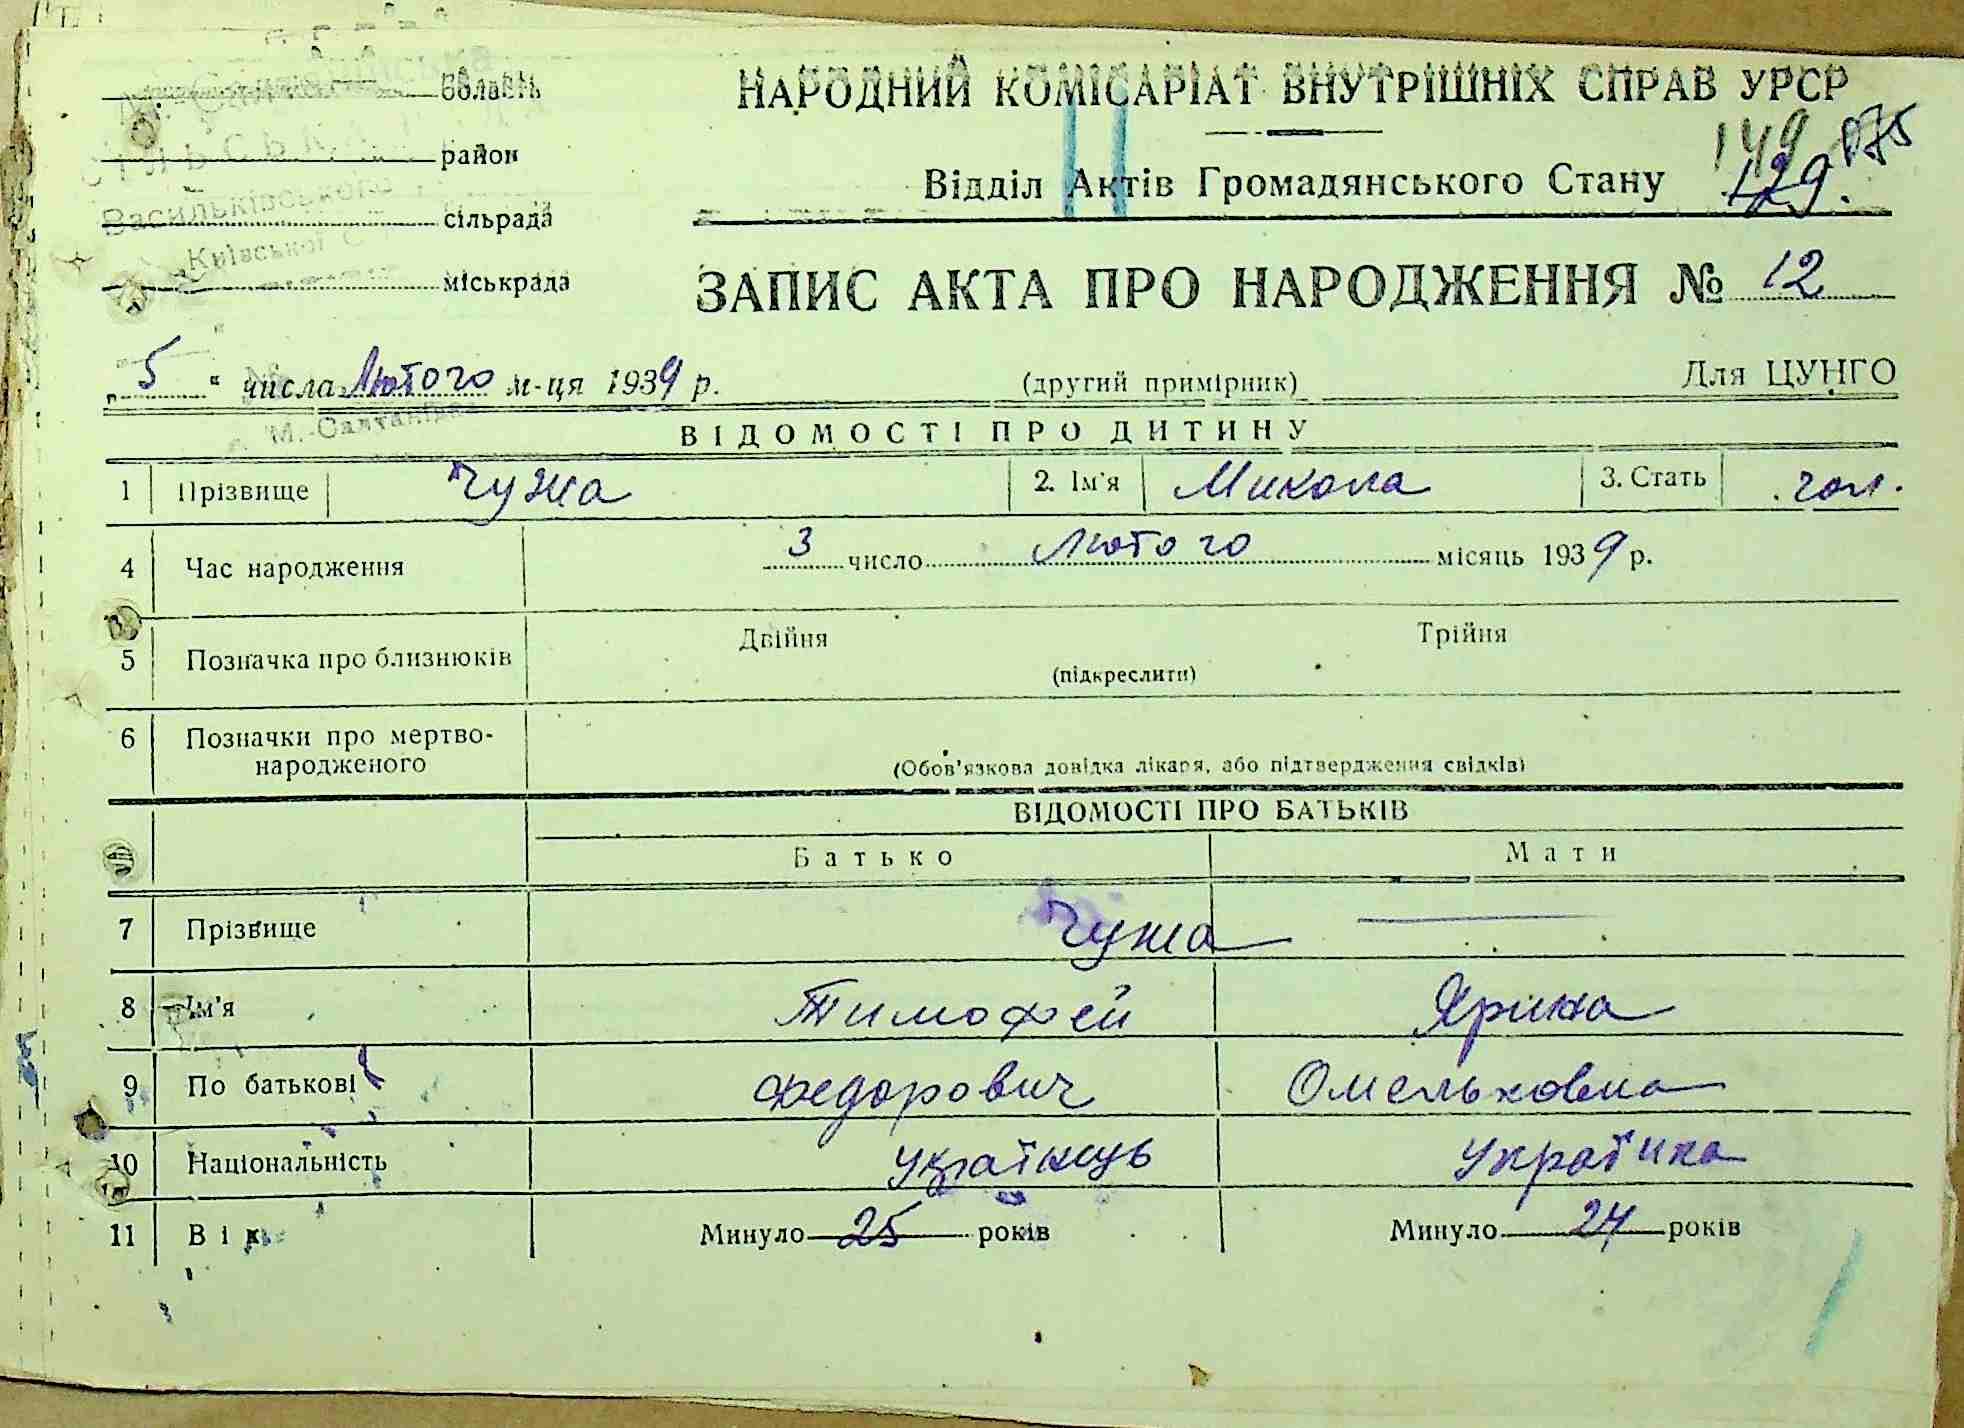 область
НАРОДНИЙ КОМІСАРІАТ ВНУТРІШНІХ СПРАВ УРСР
149 175
район
Відділ Актів Громадянського Стану 129.
Васильківського
сільрада
Київської
міськрада
ЗАПИС АКТА ПРО НАРОДЖЕННЯ № 12
„5“ числа Лютого м-ця 1939 р.
(другий примірник)
Для ЦУНГО
М.-Салтанівка
ВІДОМОСТІ ПРО ДИТИНУ
1 Прізвище Чужа 2. Ім'я Микола 3. Стать чол.
4 Час народження 3 число Лютого місяць 1939 р.
5 Позначка про близнюків Двійня Трійня
(підкреслити)
6 Позначки про мертво-
народженого
(Обов'язкова довідка лікаря, або підтвердження свідків)
ВІДОМОСТІ ПРО БАТЬКІВ
Батько Мати
7 Прізвище Чужа
8 Ім'я Тимофей Ярина
9 По батькові Федорович Омельковна
10 Національність Українець Українка
11 Вік Минуло 25 років Минуло 24 років